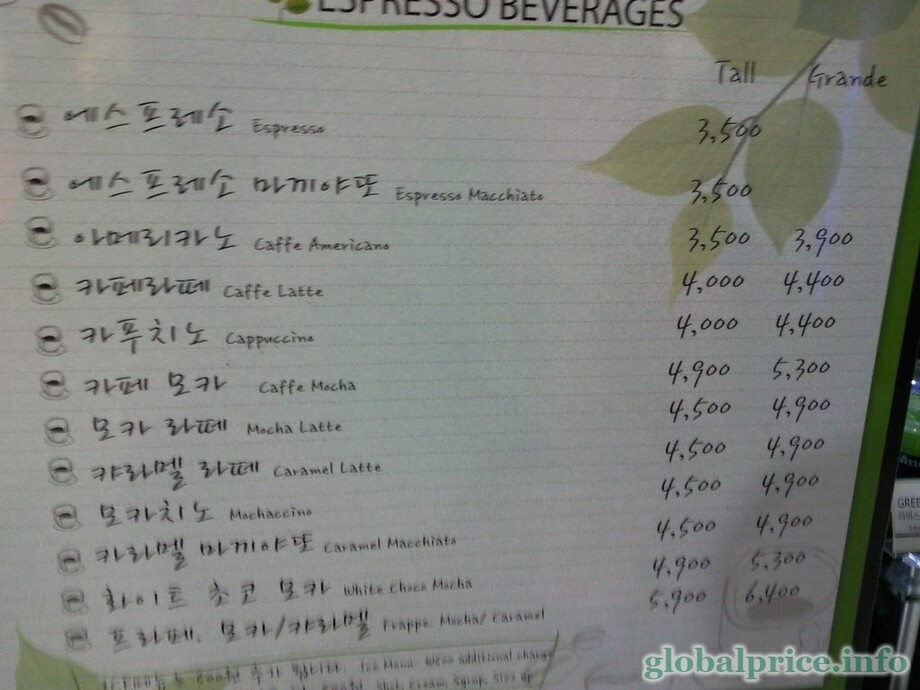 ESPRESSO BEVERAGES
Tall Grande
에스프레소 Espresso 3,500
에스프레소 마끼야또 Espresso Macchiato 3,500
아메리카노 Caffe Americano 3,500 3,900
카페라떼 Caffe Latte 4,000 4,400
카푸치노 Cappuccino 4,000 4,400
카페 모카 Caffe Mocha 4,900 5,300
모카 라떼 Mocha Latte 4,500 4,900
캬라멜 라떼 Caramel Latte 4,500 4,900
모카치노 Mochaccino 4,500 4,900
카라멜 마끼야또 Caramel Macchiato 4,500 4,900
화이트 초코 모카 White Choco Mocha 4,900 5,300
프라페: 모카/캬라멜 Frappe: Mocha/ Caramel 5,900 6,400
추가 됩니다. Ice Menu: additional charge
Shot, Cream, Syrup, Size up
globalprice.info